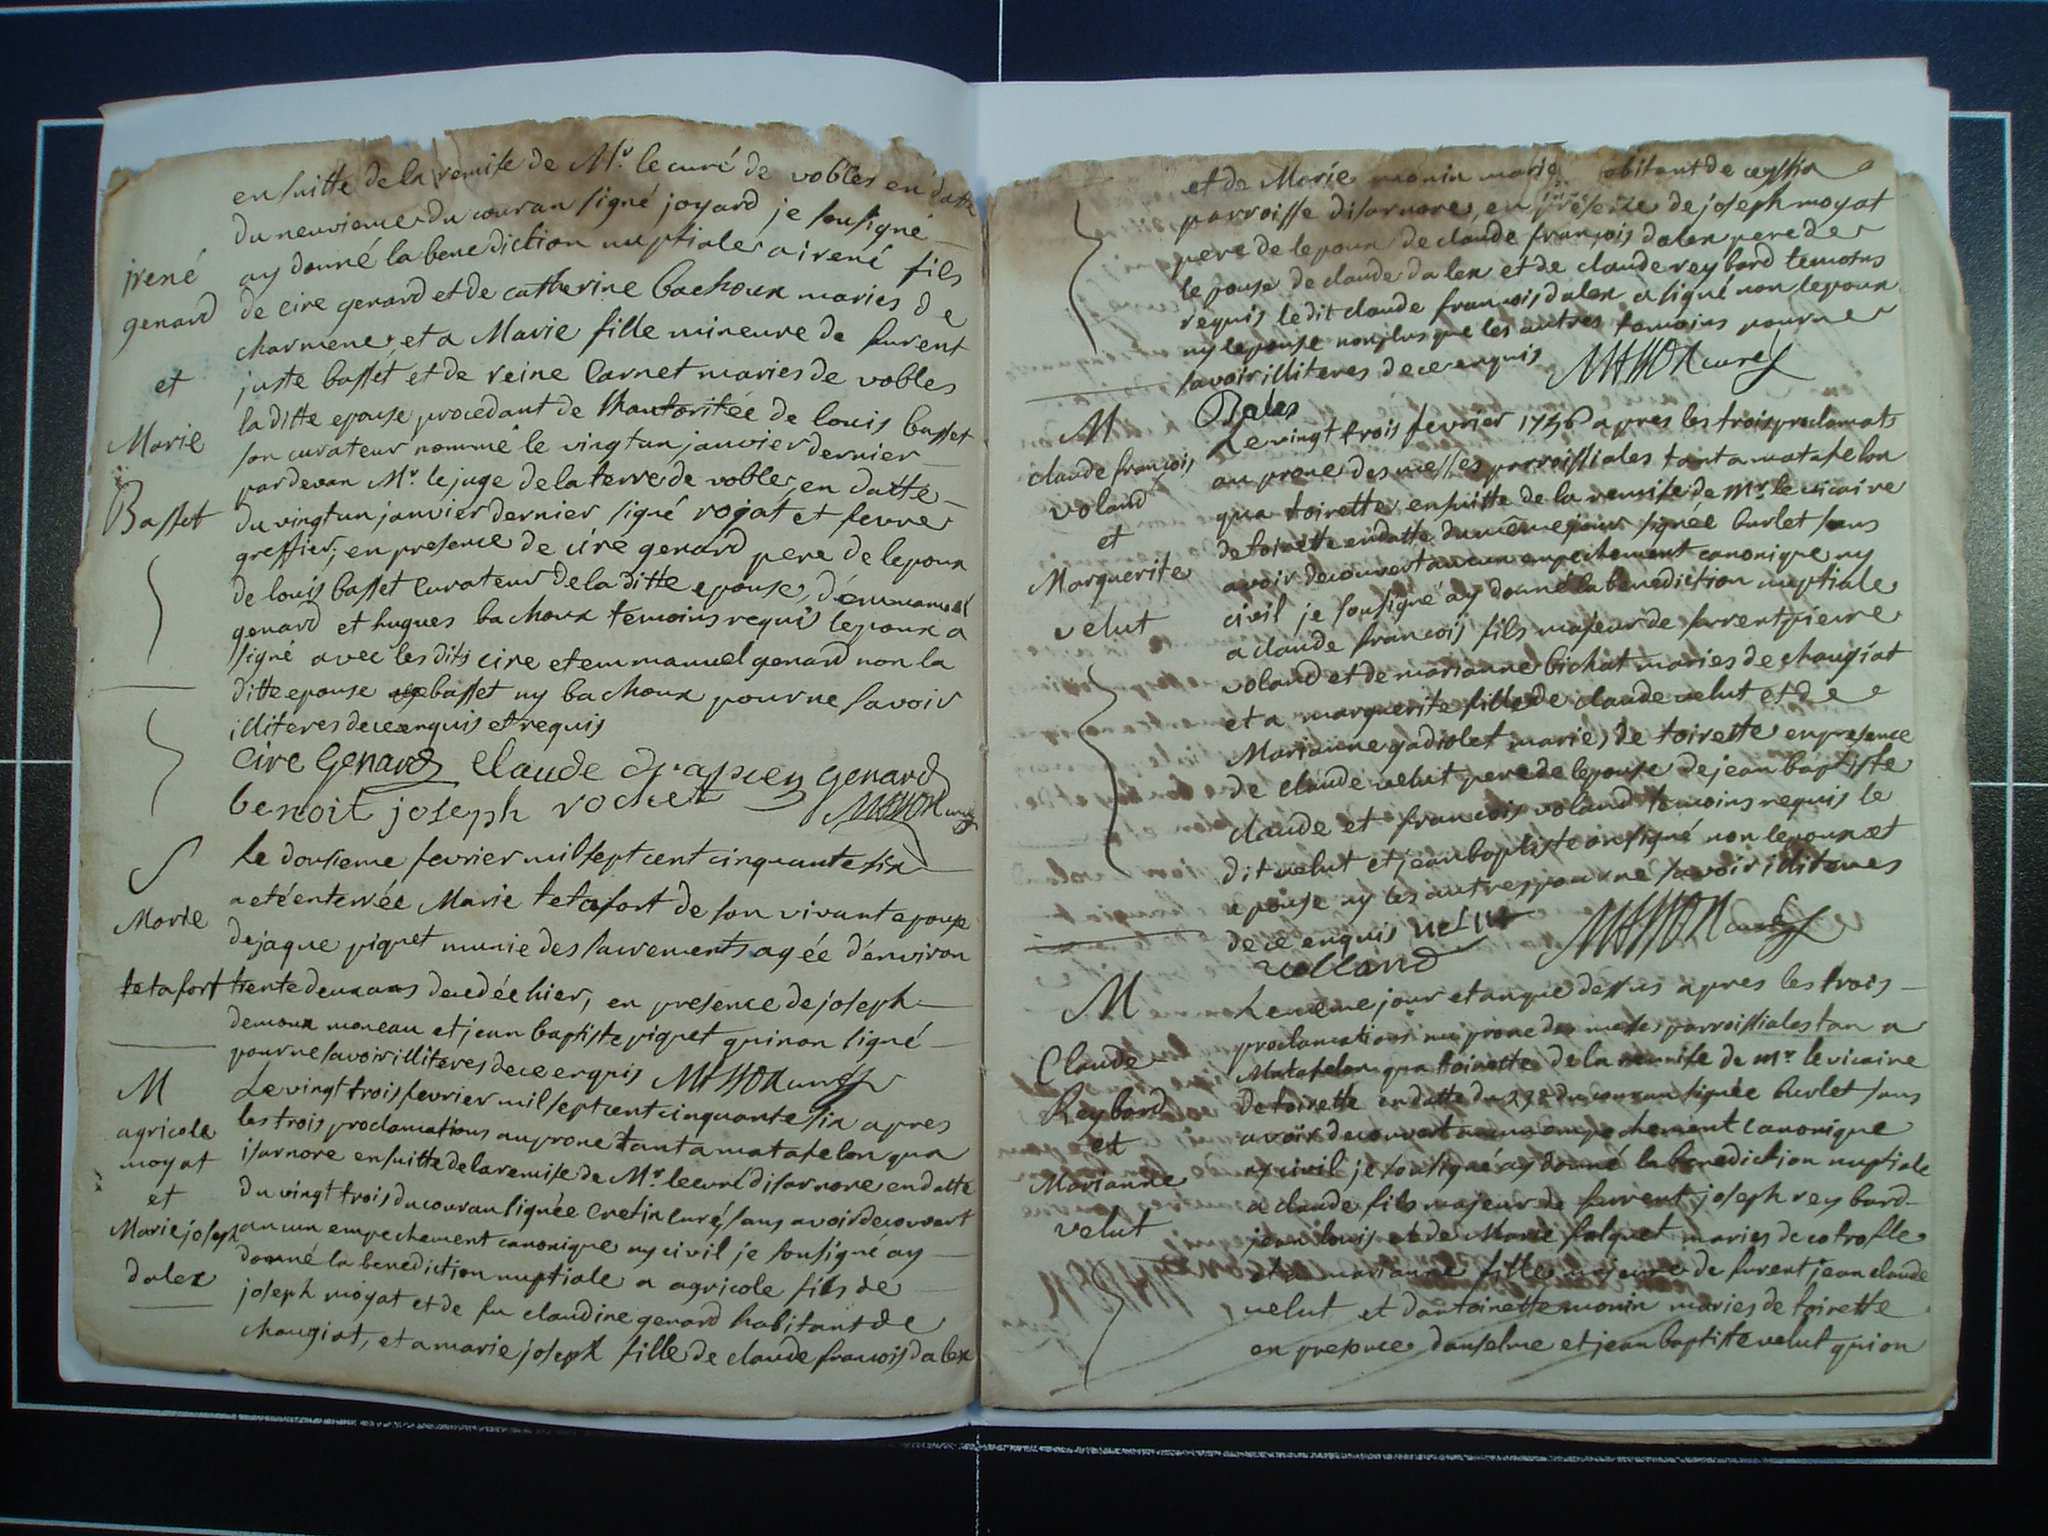 ensuitte de la remise de Mr. le curé de vobles en datte
du neuvieme du couran signé joyard je sousigné
ay donné la benediction nuptiale a irené fils
jrené
genard
et
Marie
Basset
de cire genard et de catherine bachoux maries de
charmene, et a Marie fille mineure de furent
juste basset et de reine Carnet maries de vobles
la ditte epouse procedant de lhautoritée de louis basset
son curateur nommé le vingt un janvier dernier
pardevan Mr. le juge de la terre de vobles, en datte
du vingt un janvier dernier signé rojat et fevre
greffier; en presence de cire genard pere de lepoux
de louis basset curateur de la ditte epouse, d'émmanuel
genard et hugues bachoux temoins requis lepoux a
signé avec les dits cire et emmanuel genard non la
ditte epouse basset ny bachoux pour ne savoir
illiteres de ce enquis et requis
Cire Genard Claude genard
benoit joseph rochet MASSON curé
S
Marie
tetafort
le dousieme fevrier mil sept cent cinquante six
a eté enterrée Marie tetafort de son vivant epouse
de jaque piquet munie des sacrements agée d'environ
trente deux ans decedée hier, en presence de joseph
demoux moneau et jean baptiste piquet qui non signé
pour ne savoir illiteres de ce enquis MASSON curé
M
agricole
moyat
et
Marie joseph
dalex
Le vingt trois fevrier mil sept cent cinquante six apres
les trois proclamations au prone tant a matafelon qua
isarnore ensuitte de la remise de Mr. le curé disarnore en datte
du vingt trois du couran signée Cretin curé, sans avoir decouvert
aucun empechement canonique ny civil je sousigné ay
donné la benediction nuptiale a agricole fils de
joseph moyat et de fu claudine genard habitant de
chaugiat, et a marie joseph fille de claude francois dalex
et de Marie monin marie abitant de ceyssia
parroisse disarnore, en presence de joseph moyat
pere de lepoux de claude francois dalex pere de
lepouse de claude dalex et de claude reybard temoins
requis le dit claude francois dalex a signé non lepoux
ny lepouse non plus que les autres temoins pour ne
savoir illiteres de ce enquis MASSON curé
Dalex
M
claude francois
voland
et
Marguerite
velut
Le vingt trois fevrier 1756 apres les trois proclamats
au prone des messes parroissiales tant a matafelon
qua toirette ensuitte de la remise de mr. le vicaire
de toirette en datte du même jour signée burlet sans
avoir decouvert aucun empechement canonique ny
civil je sousigné ay donné la benediction nuptiale
a claude francois fils majeur de furent pierre
voland et de marianne bichat maries de chaugiat
et a marguerite fille de claude velut et de
Marianne gadiolet mariés de toirette en presence
de claude velut pere de lepouse de jean baptiste
claude et francois voland temoins requis le
dit velut et jean baptiste on signé non lepoux et
epouse ny les autres pour ne savoir illiteres
de ce enquis velut MASSON curé
volland
M
Claude
Reybard
et
Marianne
velut
Le meme jour et an que dessus apres les trois
proclamations au prone des messes parroissiales tan a
Matafelon qua toirette de la remise de mr. le vicaire
de toirette en datte du 23e du couran signée burlet sans
avoir decouvert aucun empechement canonique
ny civil je sousigné ay donné la benediction nuptiale
a claude fils majeur de furent joseph reybard
jean louis et de Marie falquet maries de cotrofle
et a marianne fille majeure de furent jean claude
velut et dantoinette monin maries de toirette
en presence danselme et jean baptiste velut qui on